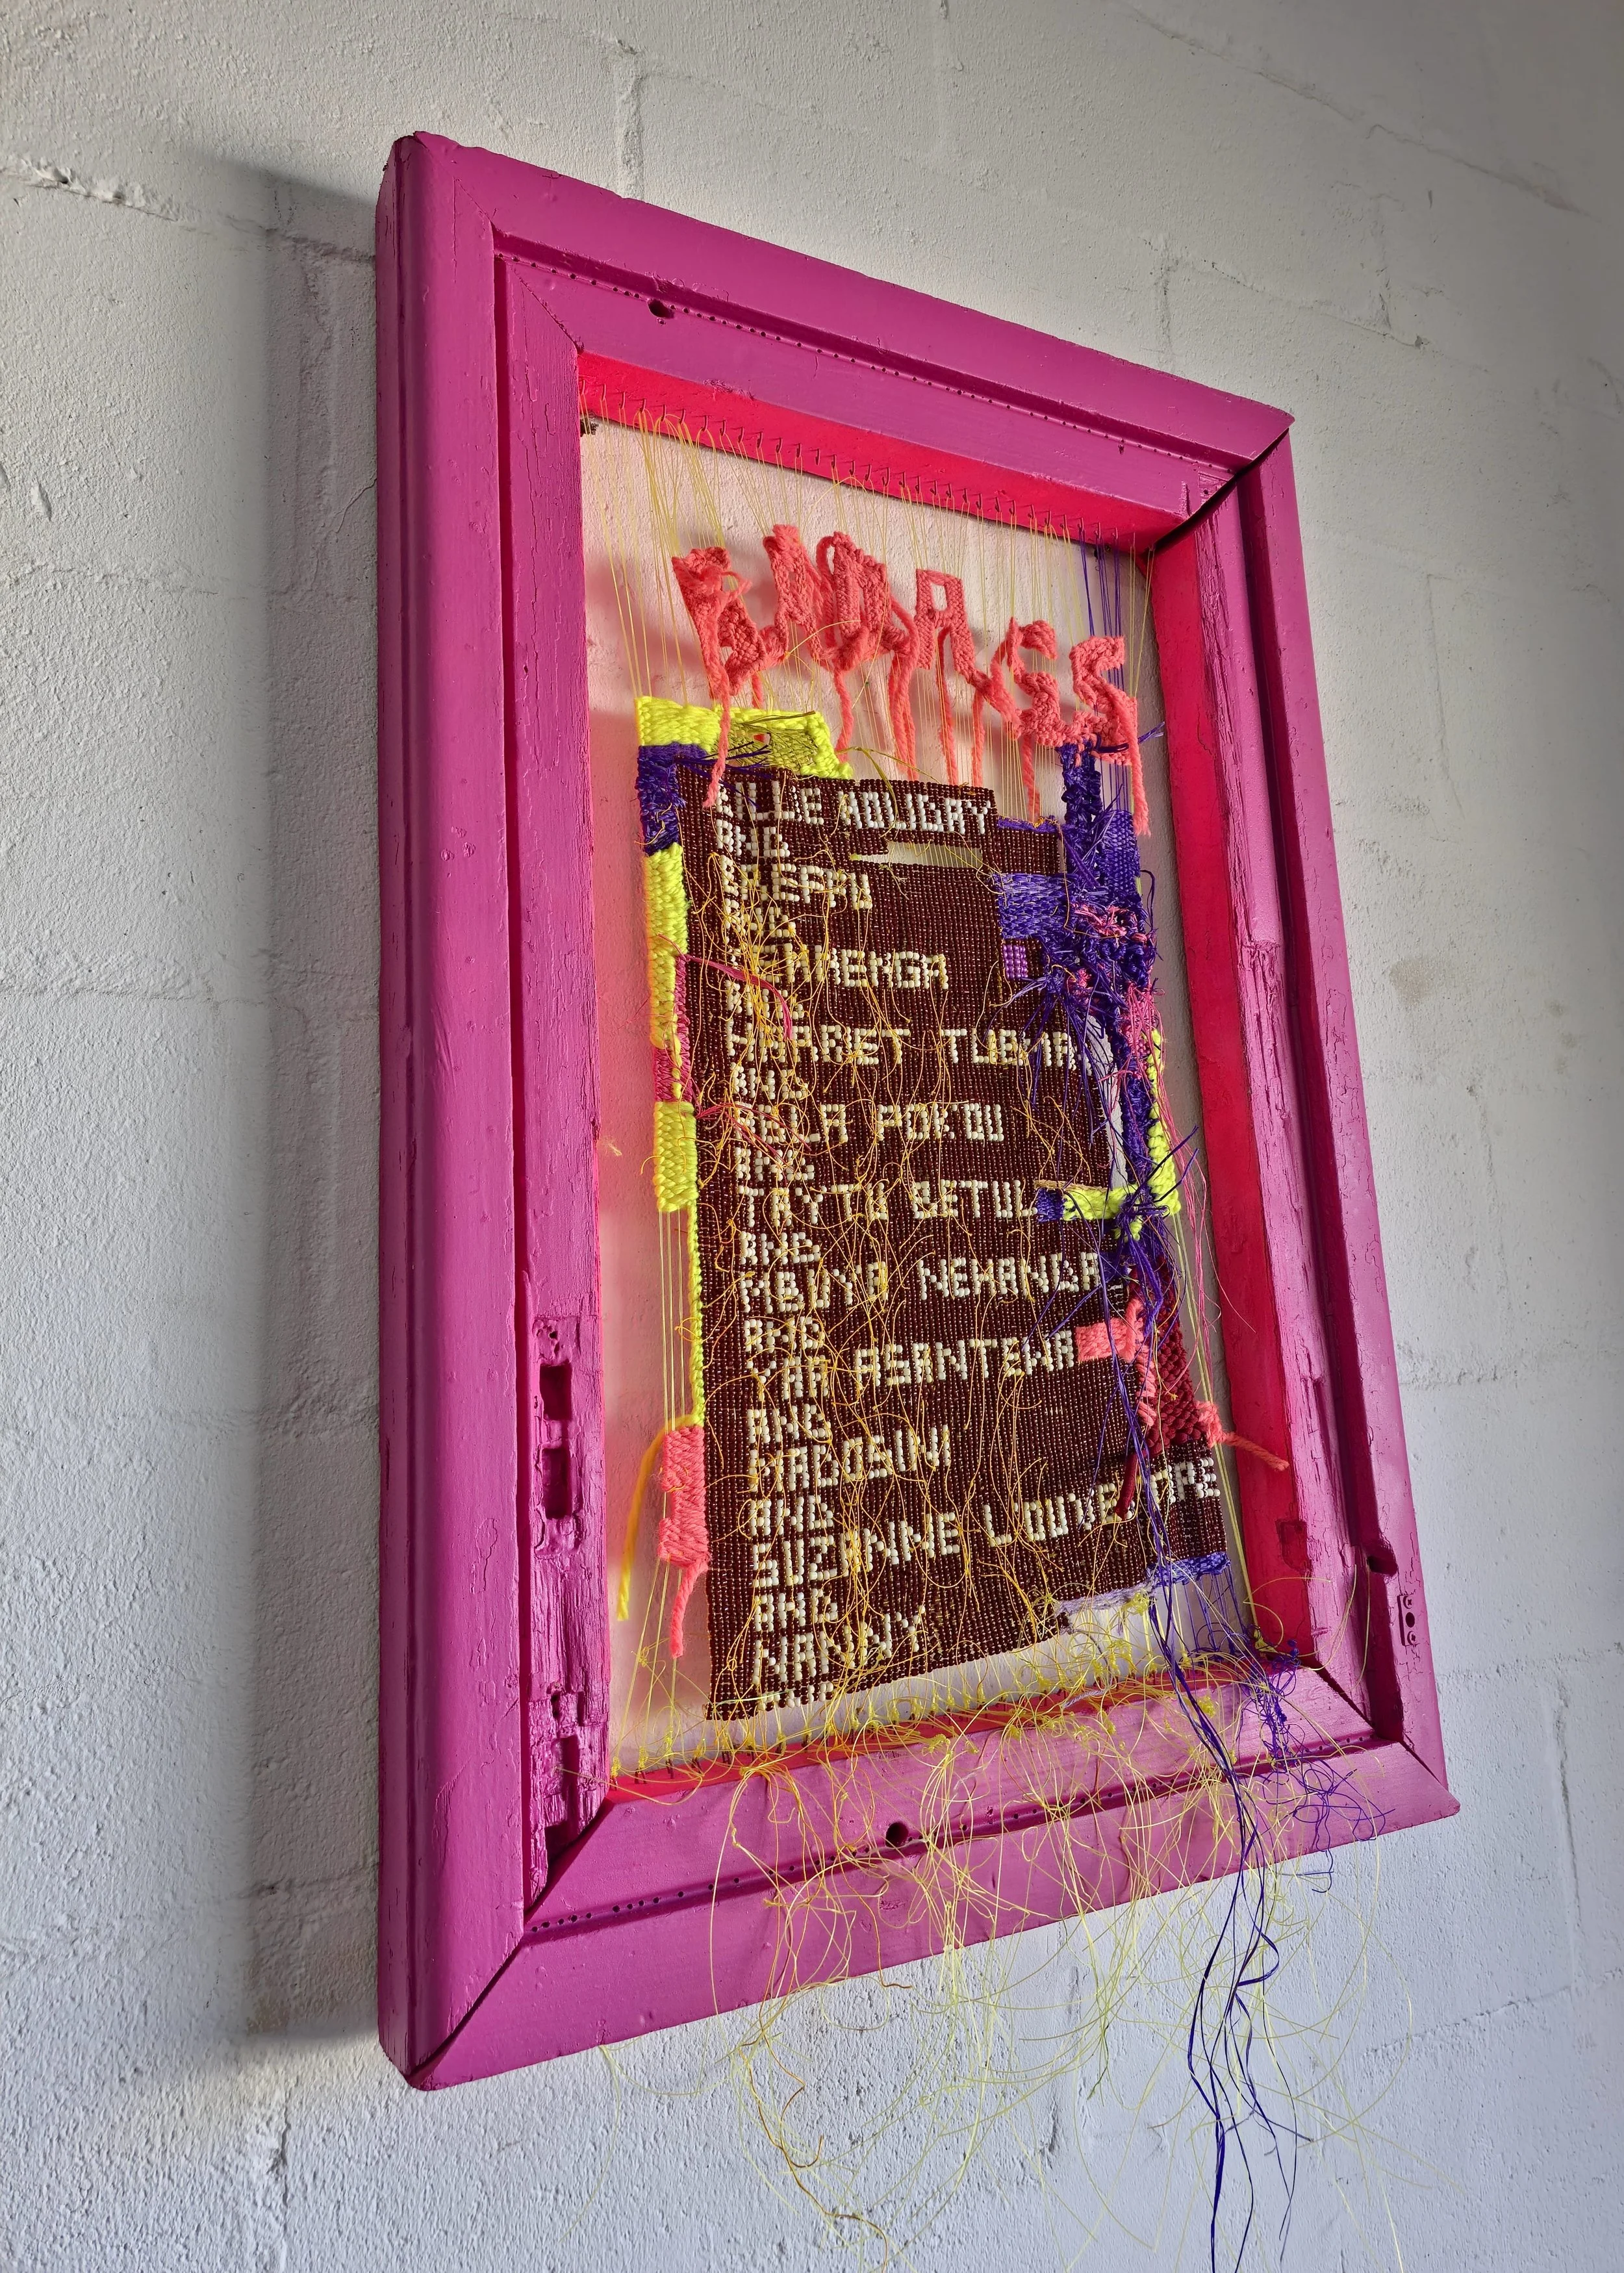 BADASS
BILLIE HOLIDAY
AND
AND
AND
HARRIET TUBMAN
AND
ABLA POKOU
AND
TAYTU BETUL
AND
MBUYA NEHANDA
AND
YAA ASANTEWA
AND
AND
SUZANNE
AND
NANNY
AND